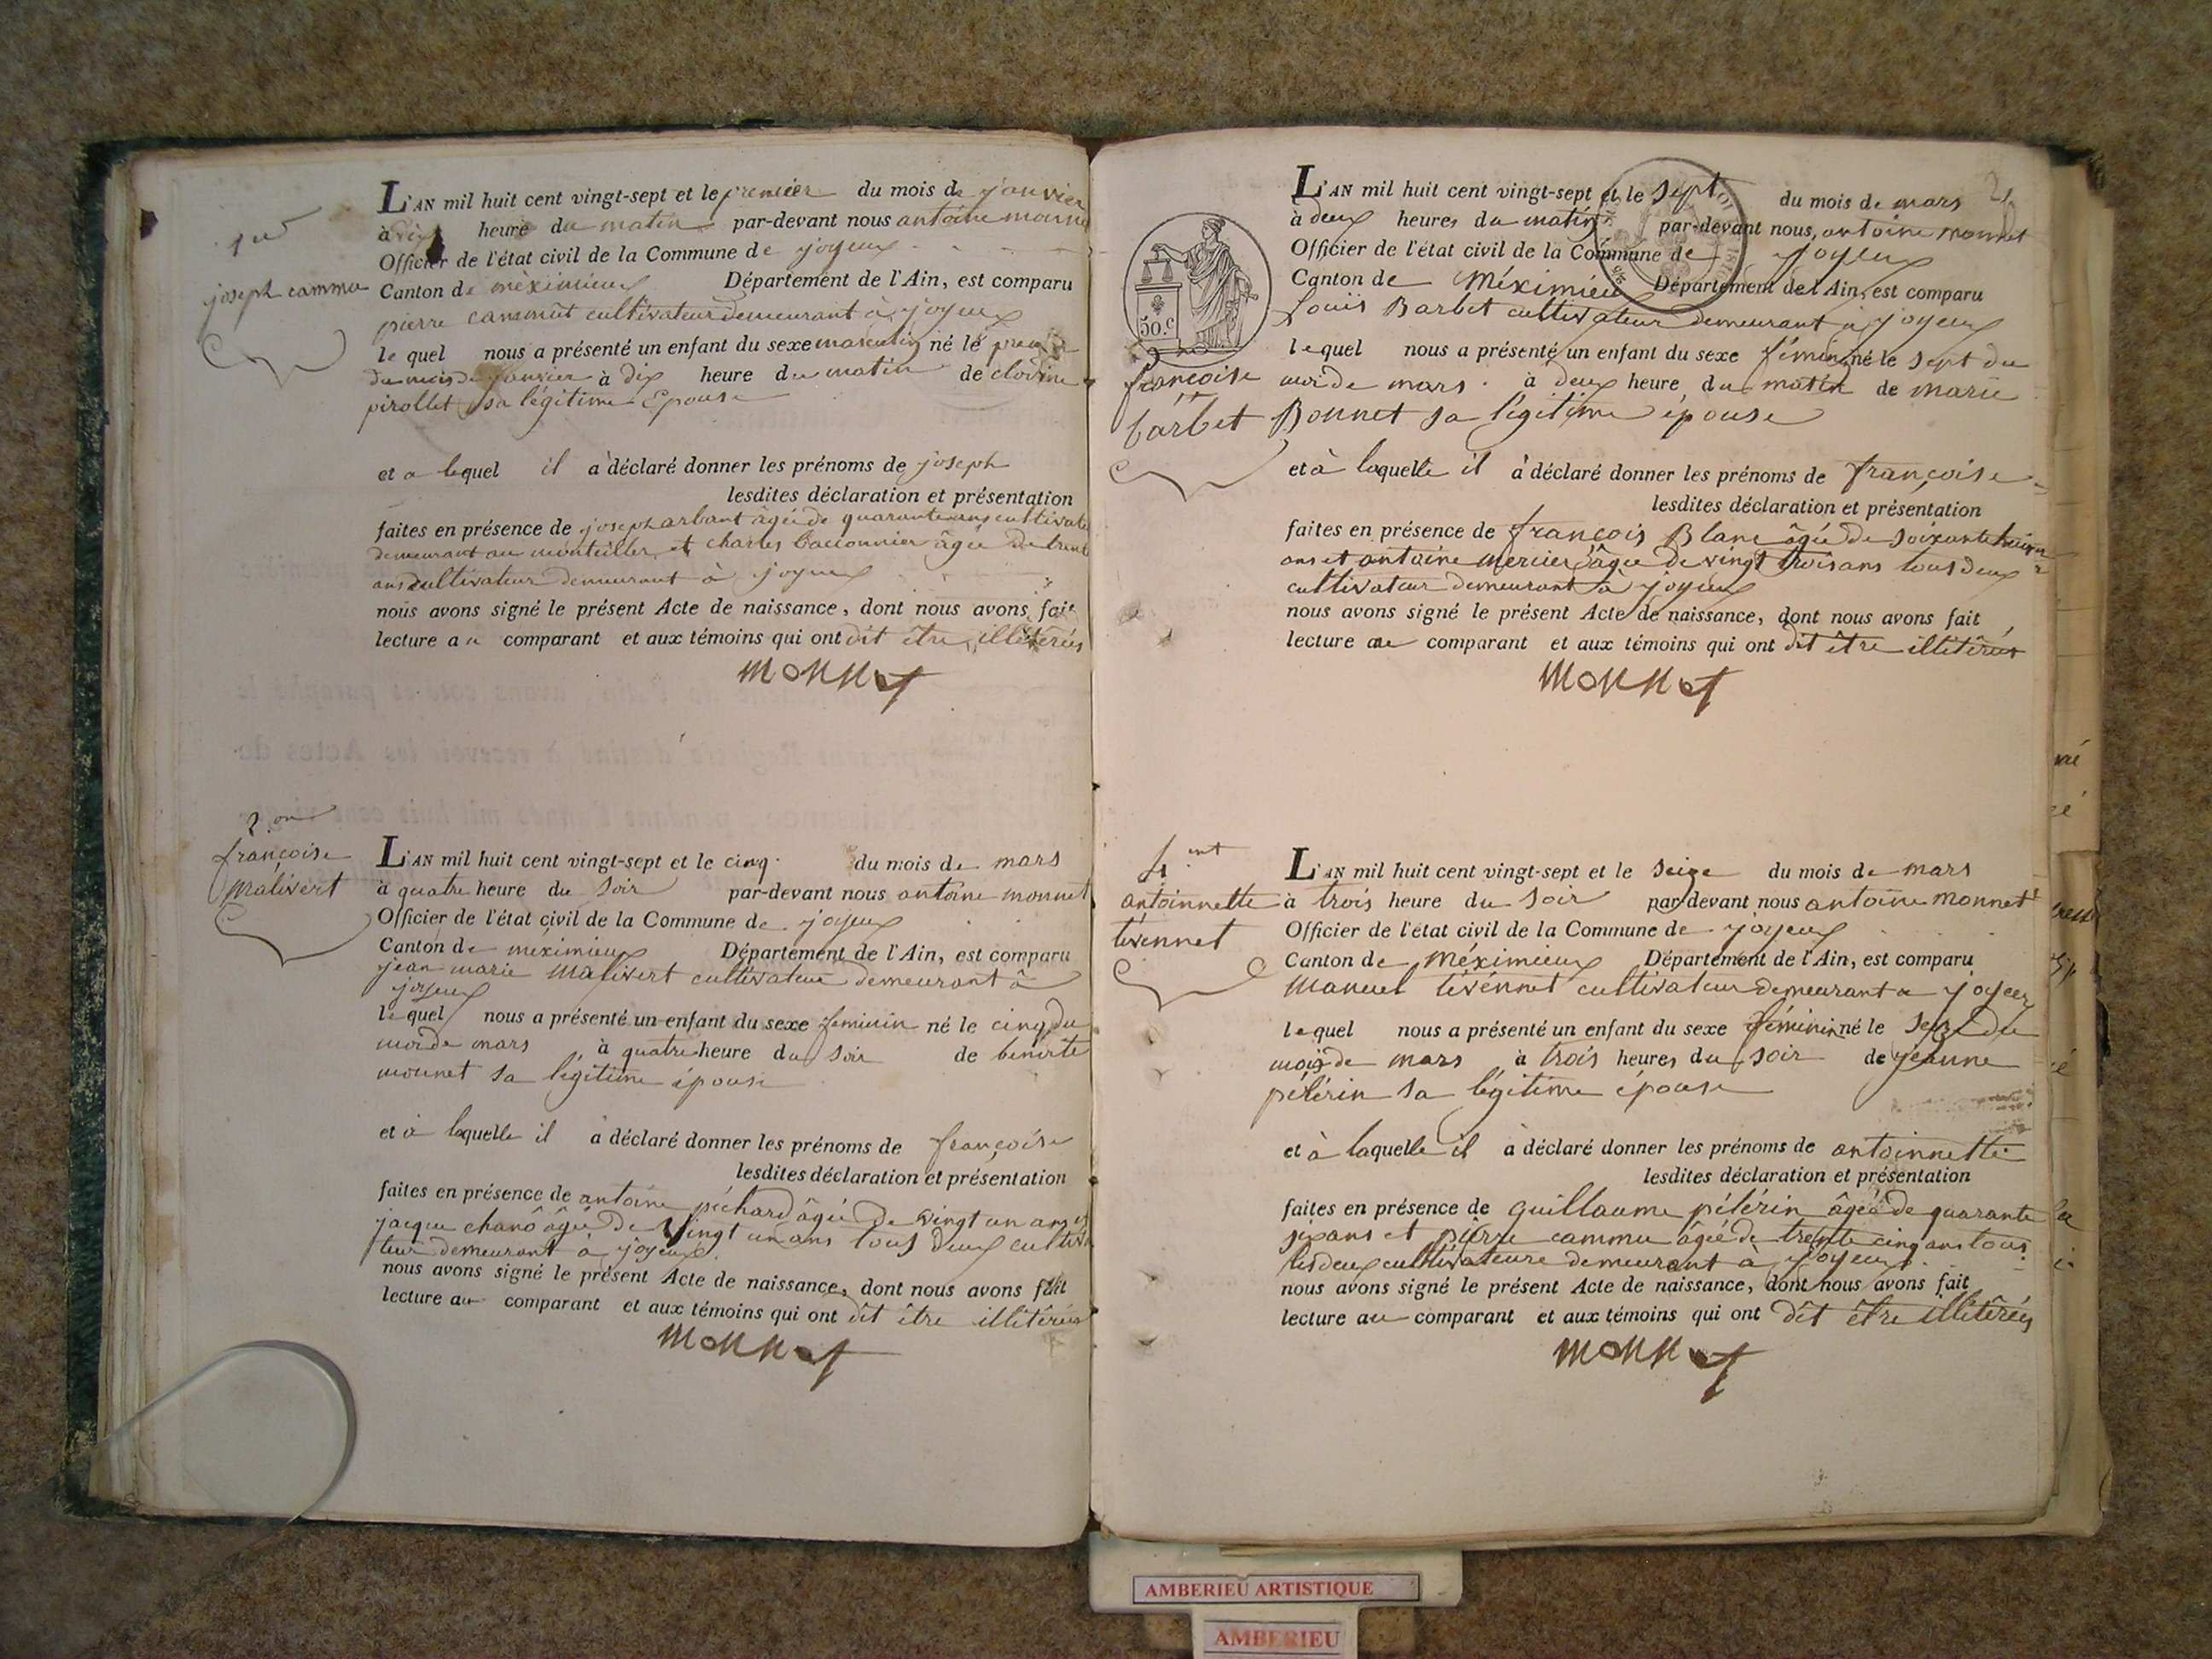 1er
joseph cammu
L'AN mil huit cent vingt-sept et le premier du mois de janvier
à dix heure du matin par-devant nous antoine monne
Officier de l'état civil de la Commune de joyeux
Canton de méximieux Département de l'Ain, est comparu
pierre cammût cultivateur demeurant à joyeux
le quel nous a présenté un enfant du sexe masculin né le premier
du mois de janvier à dix heure du matin de clodine
pirollet sa légitime Epouse
et a lequel il a déclaré donner les prénoms de joseph
lesdites déclaration et présentation
faites en présence de joseph arbant âgée de quarante ans cultivate
demeurant au montellier et charles âgée de trente
ans cultivateur demeurant à joyeux
nous avons signé le présent Acte de naissance, dont nous avons fait
lecture au comparant et aux témoins qui ont dit être illitérés
monnet
françoise
malivert
L'AN mil huit cent vingt-sept et le cinq du mois de mars
à quatre heure du soir par-devant nous antoine monnet
Officier de l'état civil de la Commune de joyeux
Canton de méximieux Département de l'Ain, est comparu
jean marie malivert cultivateur demeurant à
joyeux
le quel nous a présenté un enfant du sexe feminin né le cinq du
moi de mars à quatre heure du soir de benoite
monnet sa légitime épouse
et à laquelle il a déclaré donner les prénoms de françoise
lesdites déclaration et présentation
faites en présence de antoine péchard âgée de vingt un ans et
jacque chanô âgée de vingt un ans tous deux cultiva
teur demeurant à joyeux
nous avons signé le présent Acte de naissance, dont nous avons fait
lecture au comparant et aux témoins qui ont dit être illitérés
monnet
2
50.c
françoise
barbet
L'AN mil huit cent vingt-sept et le sept du mois de mars
à deux heures du matin par-devant nous, antoine monnet
Officier de l'état civil de la Commune de joyeux
Canton de Méximieu Département de l'Ain, est comparu
Louis Barbet cultivateur demeurant à joyeux
lequel nous a présenté un enfant du sexe féminin né le sept du
moi de mars à deux heure du matin de marie
Bonnet sa légitime épouse
et à laquelle il a déclaré donner les prénoms de françoise
lesdites déclaration et présentation
faites en présence de françois Blanc âgée de soixante
ans et antoine mercier âgée de vingt trois ans tous deux
cultivateur demeurant à joyeux
nous avons signé le présent Acte de naissance, dont nous avons fait
lecture au comparant et aux témoins qui ont dit être illitérés
monnet
antoinnette
tévennet
L'AN mil huit cent vingt-sept et le seize du mois de mars
à trois heure du soir par-devant nous antoine monnet
Officier de l'état civil de la Commune de joyeux
Canton de Méximieux Département de l'Ain, est comparu
manuel tévénnet cultivateur demeurant a joyeux
lequel nous a présenté un enfant du sexe féminin né le seize du
mois de mars à trois heures du soir de jeanne
pélérin sa légitime épouse
et à laquelle il a déclaré donner les prénoms de antoinnette
lesdites déclaration et présentation
faites en présence de guillaume pélérin âgée de quarante
six ans et pierre cammu âgée de trente cinq ans tous
les deux cultivateure demeurant à joyeux
nous avons signé le présent Acte de naissance, dont nous avons fait
lecture au comparant et aux témoins qui ont dit être illitérés
monnet
AMBERIEU ARTISTIQUE
AMBERIEU